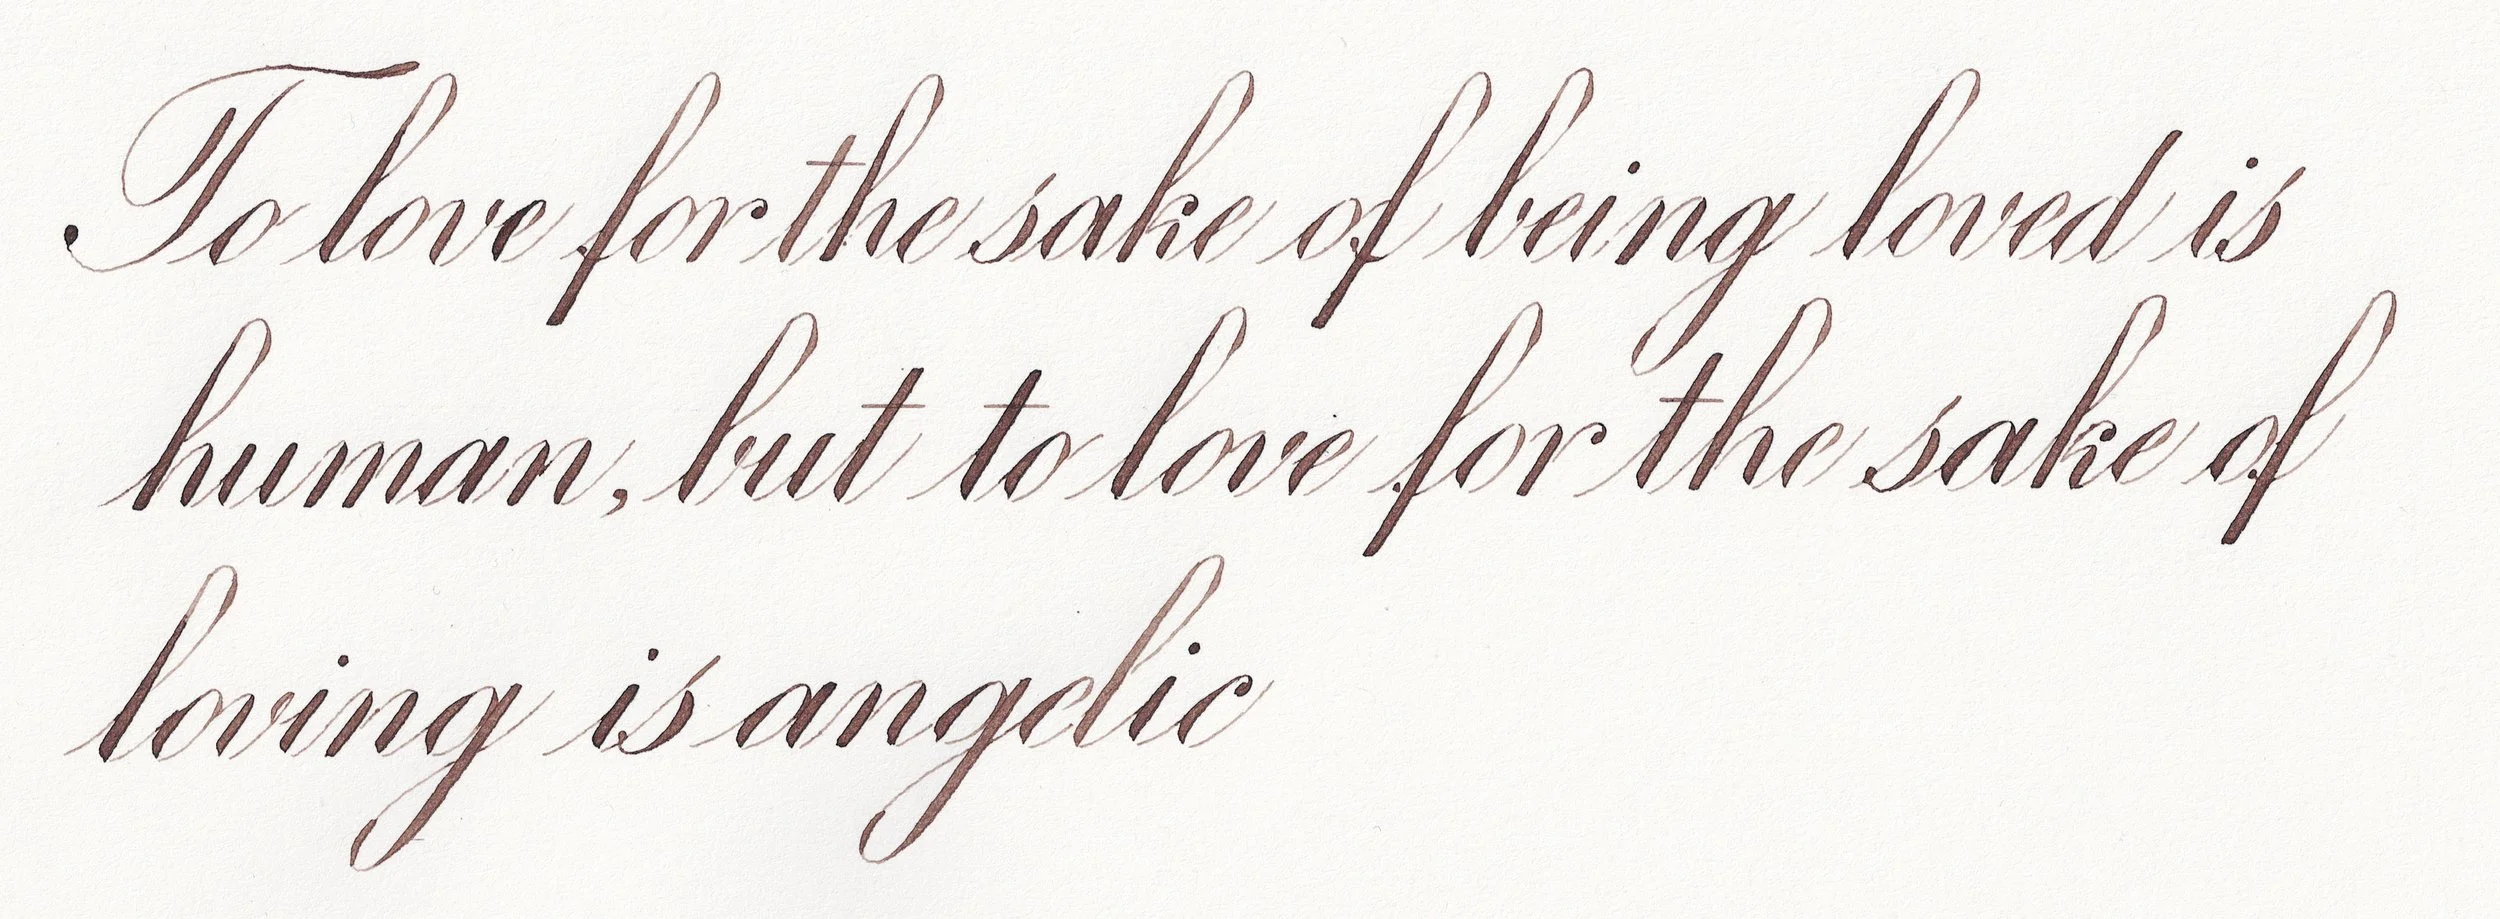 To love for the sake of being loved is
human, but to love for the sake of
loving is angelic